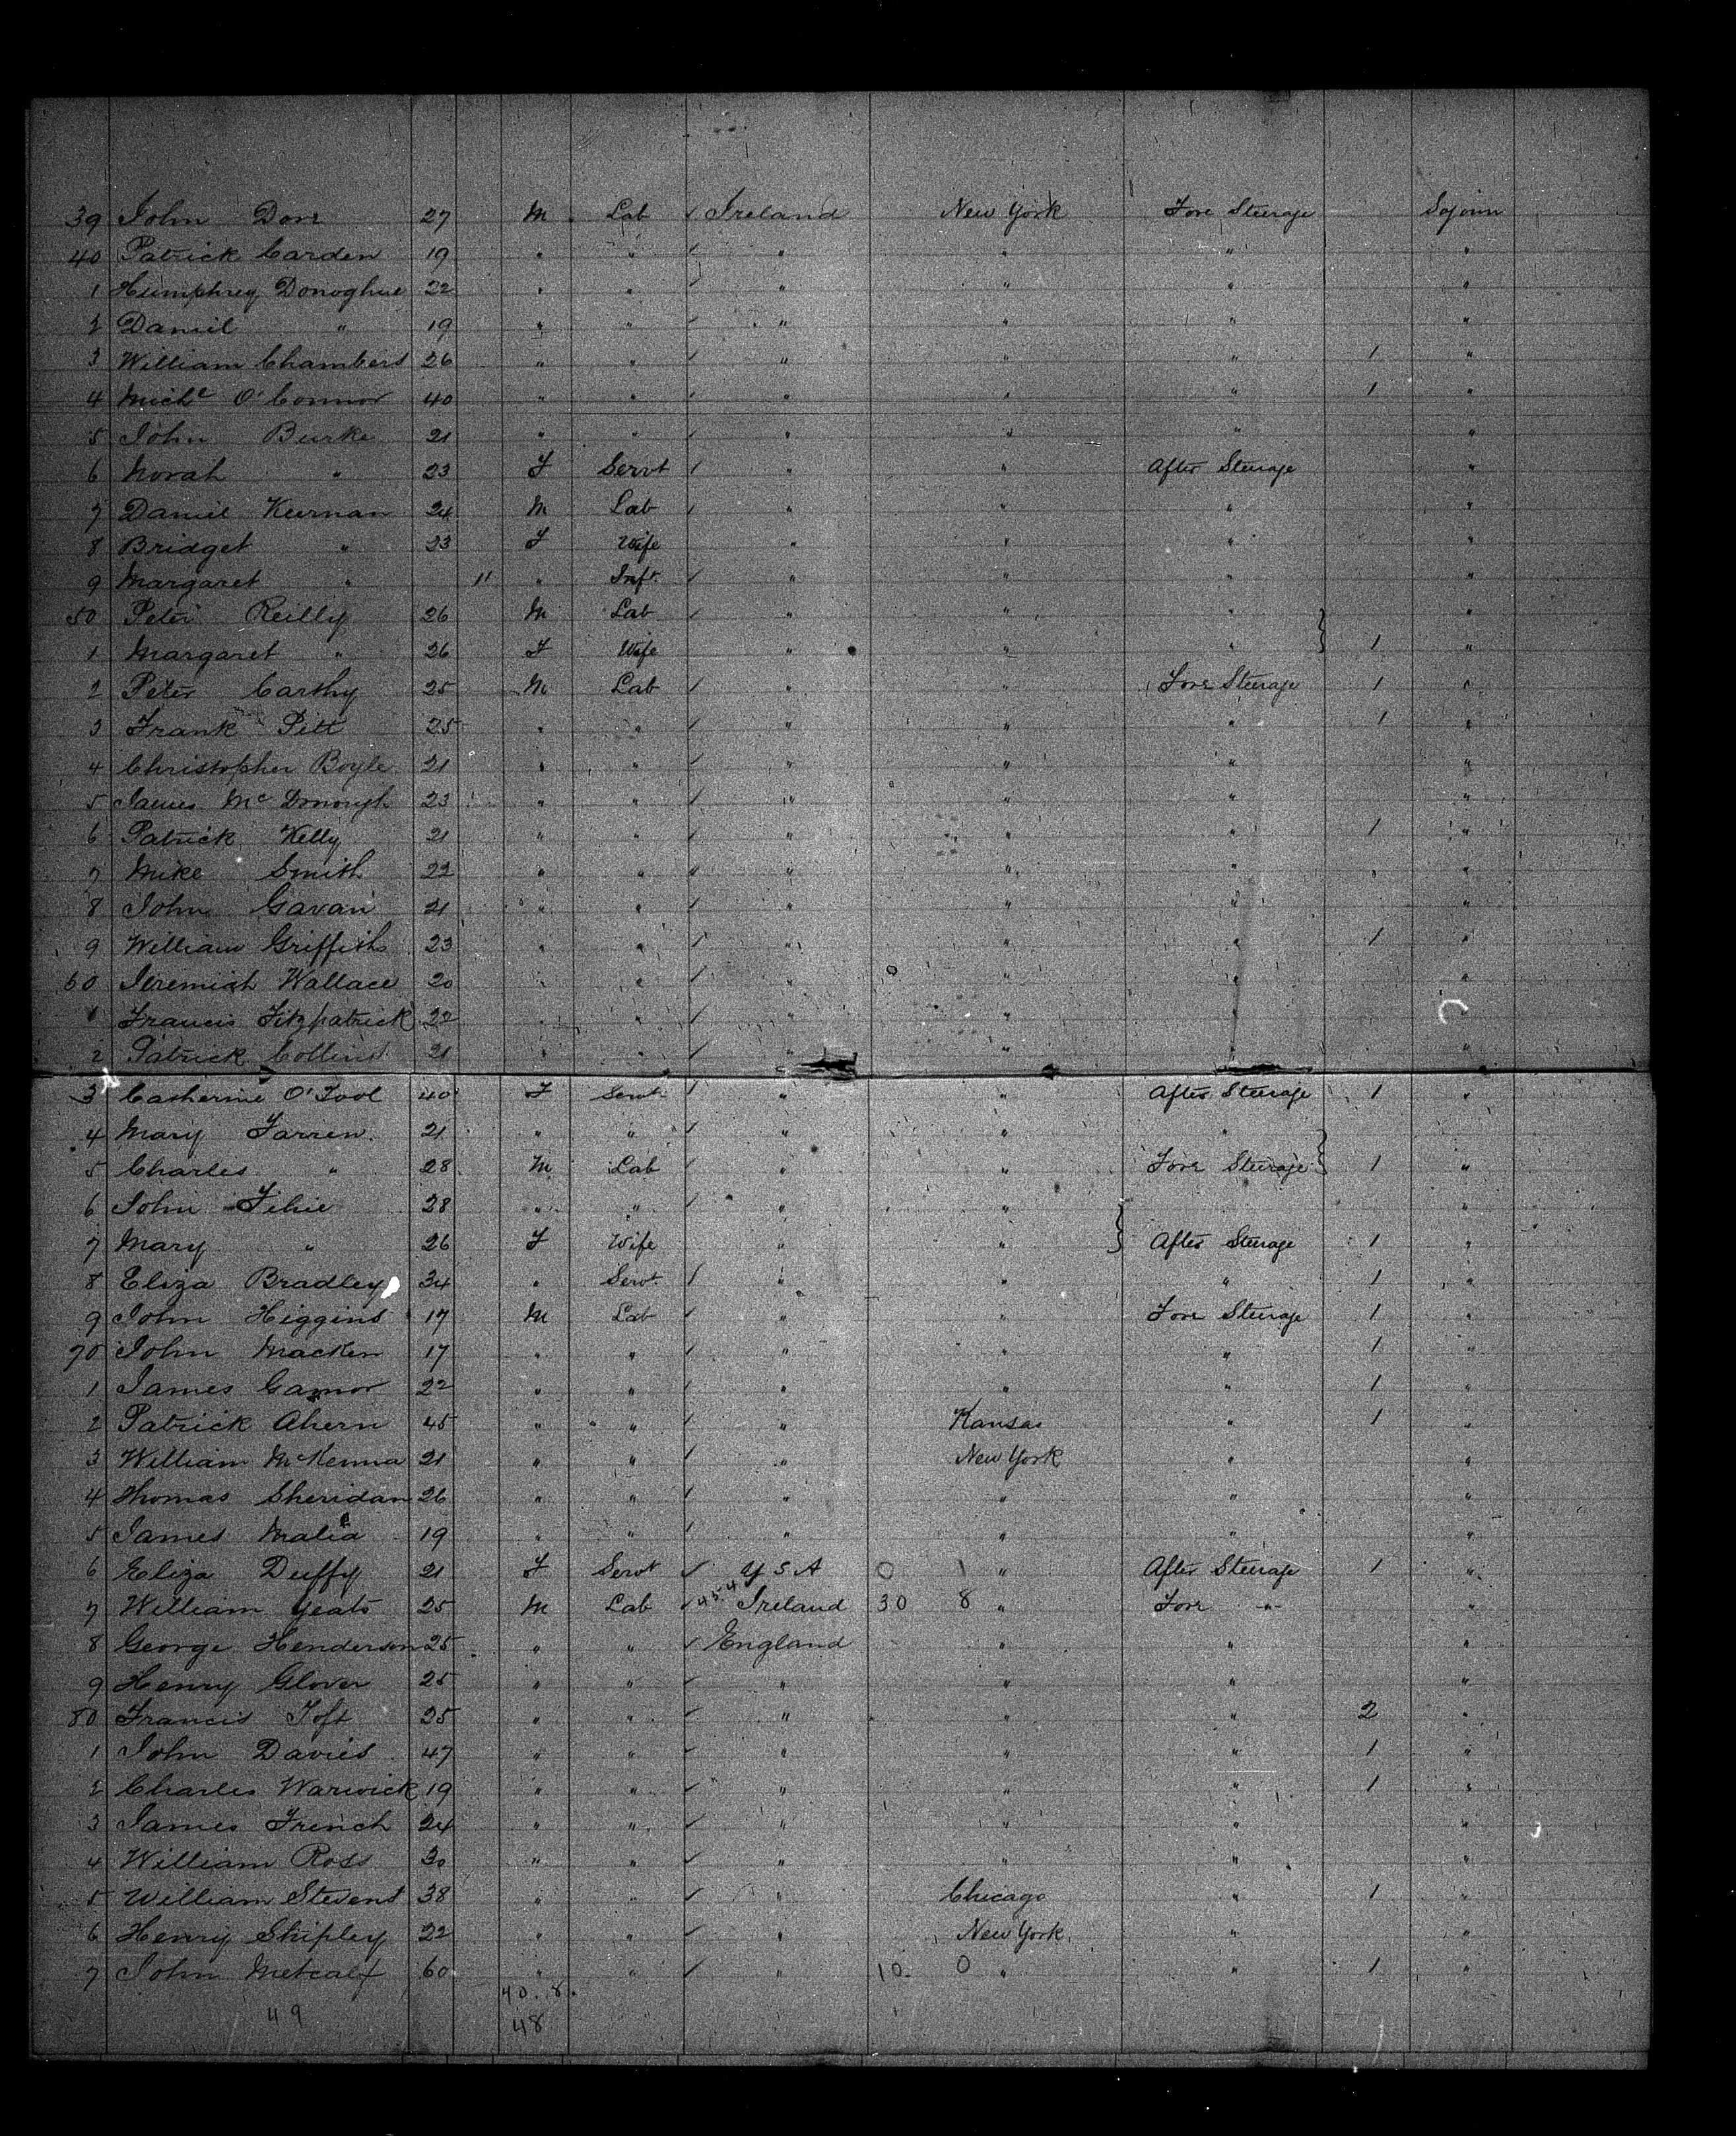 39 John Dore 27 M Lab ✓ Ireland New York Fore Steerage Sojourn
40 Patrick Carden 19 " " ✓ " " " "
1 Humphrey Donoghue 22 " " ✓ " " " "
2 Daniel " 19 " " ✓ " " " "
3 William Chambers 26 " " ✓ " " " 1 "
4 Michl O'Connor 40 " " ✓ " " " 1 "
5 John Burke 21 " " ✓ " " " "
6 Norah " 23 F Servt ✓ " " After Steerage "
7 Daniel Keernan 24 M Lab ✓ " " " "
8 Bridget " 23 F Wife " " " "
9 Margaret " 11 " Inft ✓ " " " "
50 Peter Reilly 26 M Lab ✓ " " " "
1 Margaret " 26 F Wife " " " 1 "
2 Peter Carthy 25 M Lab ✓ " " Fore Steerage 1 "
3 Frank Pitt 25 " " ✓ " " " 1 "
4 Christopher Boyle 21 " " ✓ " " " "
5 James McDonough 23 " " ✓ " " " "
6 Patrick Kelly 21 " " ✓ " " " 1 "
7 Mike Smith 22 " " " " " " "
8 John Gavan 21 " " ✓ " " " "
9 William Griffiths 23 " " ✓ " " " 1 "
60 Jeremiah Wallace 20 " " ✓ " " " "
1 Francis Fitzpatrick 22 " " ✓ " " "
2 Patrick Collins 21 " " ✓ " " " "
3 Catherine O'Tool 40 F Servt ✓ " " After Steerage 1 "
4 Mary Farren 21 " " ✓ " " "
5 Charles " 28 M Lab ✓ " " Fore Steerage 1 "
6 John Fehie 28 " " ✓ " " "
7 Mary " 26 F Wife " " After Steerage 1 "
8 Eliza Bradley 34 " Servt ✓ " " " 1 "
9 John Higgins 17 M Lab ✓ " " Fore Steerage 1 "
70 John Macken 17 " " ✓ " " " 1 "
1 James 22 " " ✓ " " " 1 "
2 Patrick Ahern 45 " " ✓ " Kansas " 1 "
3 William McKenna 21 " " ✓ " New York " "
4 Thomas Sheridan 26 " " ✓ " " " "
5 James Malia 19 " " ✓ " " " "
6 Eliza Duffy 21 F Servt ✓ U S A 0 1 " After Steerage 1 "
7 William Yeats 25 M Lab ✓ 454 Ireland 30 8 " Fore " "
8 George Henderson 25 " " ✓ England " " "
9 Henry Glover 25 " " ✓ " " " "
80 Francis Toft 25 " " ✓ " " " 2 "
1 John Davies 47 " " ✓ " " " 1 "
2 Charles Warwick 19 " " ✓ " " " 1 "
3 James French 24 " " ✓ " " " "
4 William Ross 30 " " ✓ " " " "
5 William Stevens 38 " " ✓ " Chicago " 1 "
6 Henry Shipley 22 " " ✓ " New York " "
7 John Metcalf 60 " " ✓ " 10 0 " " 1 "
40.8.
49 48